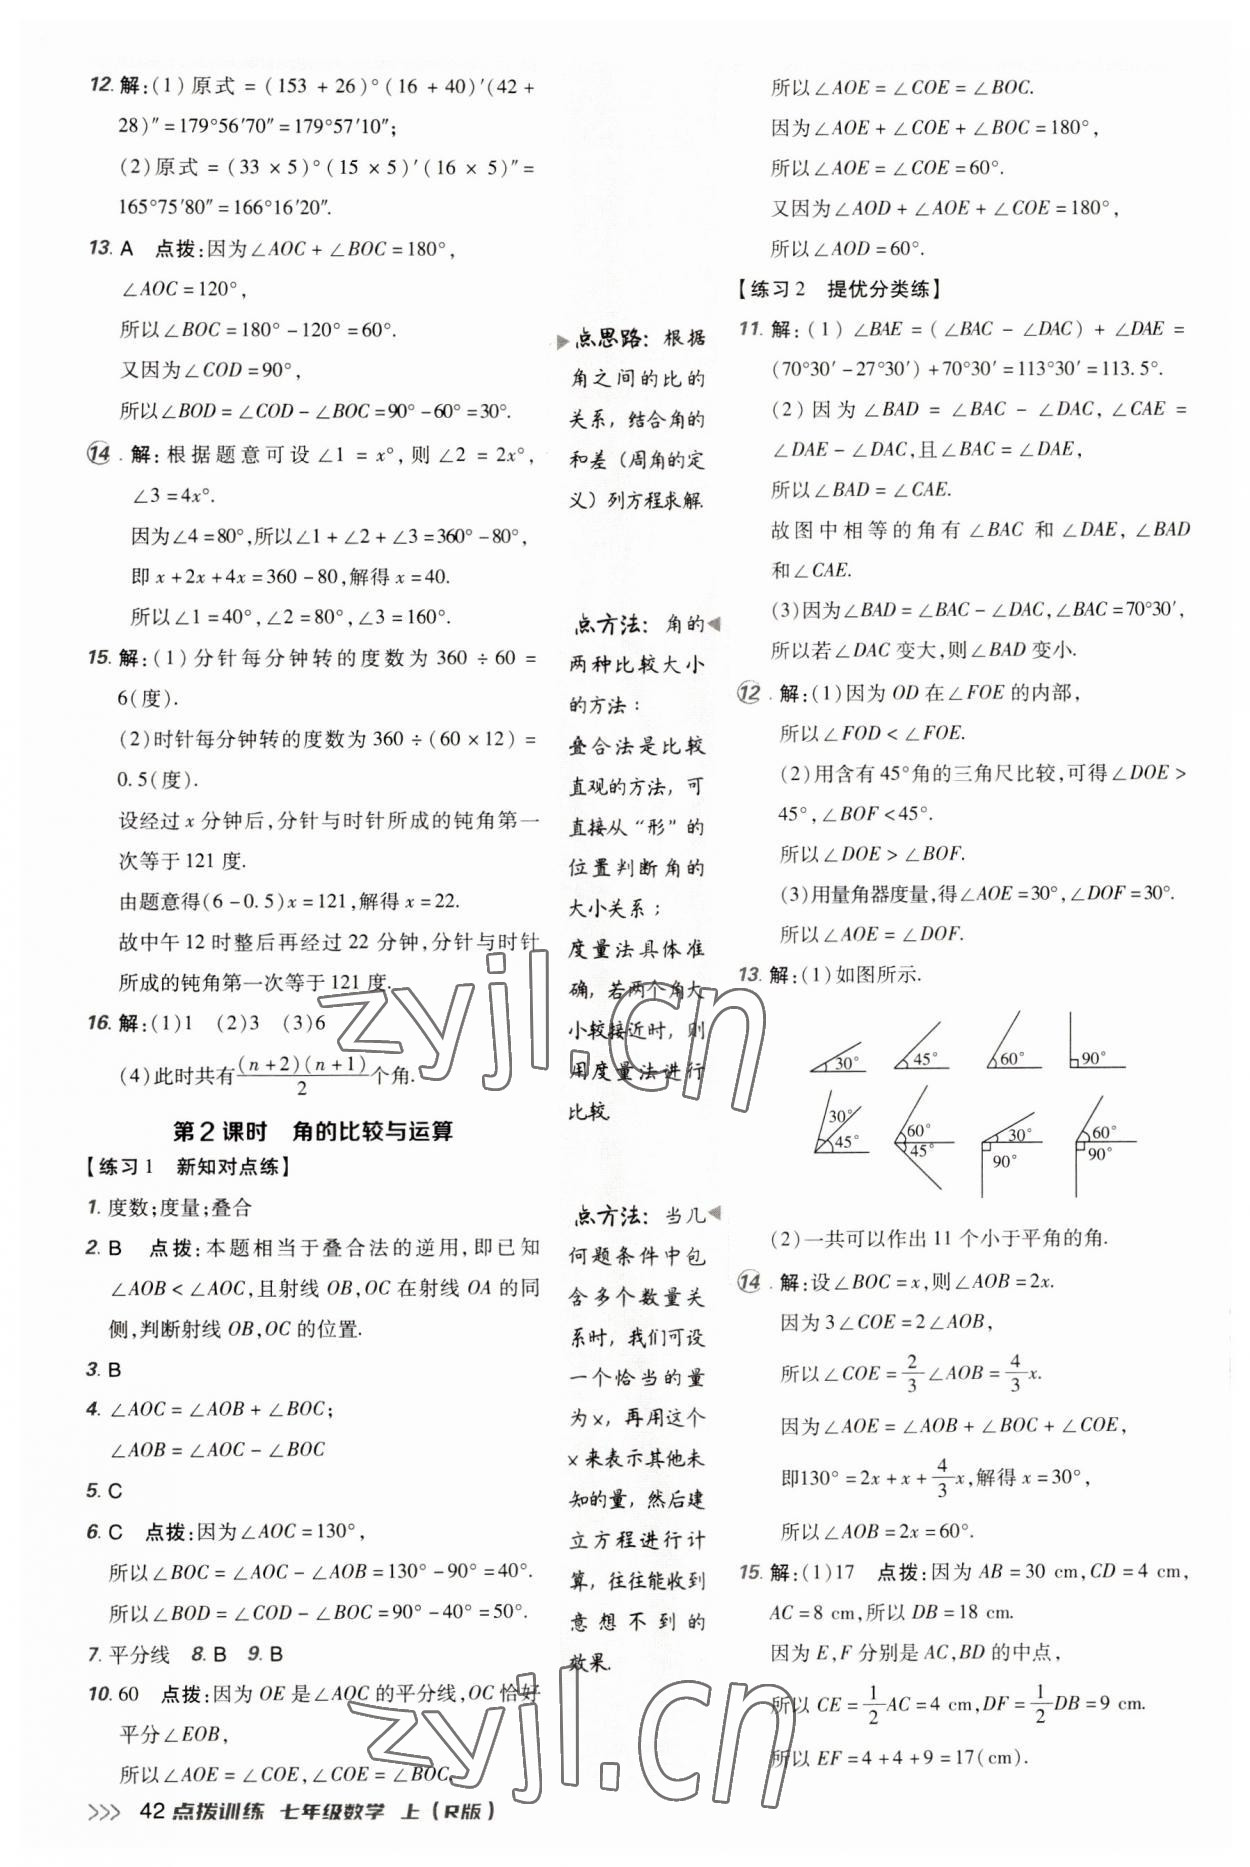 12. 解:(1)原式 = (153 + 26)°(16 + 40)′(42 +
28)″ = 179°56′70″ = 179°57′10″;
(2)原式 = (33 × 5)°(15 × 5)′(16 × 5)″ =
165°75′80″ = 166°16′20″.
13. A 点拨:因为∠AOC + ∠BOC = 180°,
∠AOC = 120°,
所以∠BOC = 180° - 120° = 60°.
又因为∠COD = 90°,
所以∠BOD = ∠COD - ∠BOC = 90° - 60° = 30°.
14. 解:根据题意可设∠1 = x°,则∠2 = 2x°,
∠3 = 4x°.
因为∠4 = 80°,所以∠1 + ∠2 + ∠3 = 360° - 80°,
即 x + 2x + 4x = 360 - 80,解得 x = 40.
所以∠1 = 40°,∠2 = 80°,∠3 = 160°.
15. 解:(1)分针每分钟转的度数为 360 ÷ 60 =
6(度).
(2)时针每分钟转的度数为 360 ÷ (60 × 12) =
0.5(度).
设经过 x 分钟后,分针与时针所成的钝角第一
次等于 121 度.
由题意得(6 - 0.5)x = 121,解得 x = 22.
故中午 12 时整后再经过 22 分钟,分针与时针
所成的钝角第一次等于 121 度.
16. 解:(1)1 (2)3 (3)6
(4)此时共有(n+2)(n+1)/2个角.
第 2 课时 角的比较与运算
【练习 1 新知对点练】
1. 度数;度量;叠合
2. B 点拨:本题相当于叠合法的逆用,即已知
∠AOB < ∠AOC,且射线 OB,OC 在射线 OA 的同
侧,判断射线 OB,OC 的位置.
3. B
4. ∠AOC = ∠AOB + ∠BOC;
∠AOB = ∠AOC - ∠BOC
5. C
6. C 点拨:因为∠AOC = 130°,
所以∠BOC = ∠AOC - ∠AOB = 130° - 90° = 40°.
所以∠BOD = ∠COD - ∠BOC = 90° - 40° = 50°.
7. 平分线 8. B 9. B
10. 60 点拨:因为 OE 是∠AOC 的平分线,OC 恰好
平分∠EOB,
所以∠AOE = ∠COE,∠COE = ∠BOC.
点思路: 根据
角之间的比的
关系, 结合角的
和差 (周角的定
义) 列方程求解.
点方法: 角的
两种比较大小
的方法:
叠合法是比较
直观的方法, 可
直接从“形”的
位置判断角的
大小关系;
度量法具体准
确, 若两个角大
小较接近时, 则
用度量法进行
比较.
点方法: 当几
何题条件中包
含多个数量关
系时, 我们可设
一个恰当的量
为 x, 再用这个
x 来表示其他未
知的量, 然后建
立方程进行计
算, 往往能收到
意想不到的
效果.
所以∠AOE = ∠COE = ∠BOC.
因为∠AOE + ∠COE + ∠BOC = 180°,
所以∠AOE = ∠COE = 60°.
又因为∠AOD + ∠AOE + ∠COE = 180°,
所以∠AOD = 60°.
【练习 2 提优分类练】
11. 解:(1)∠BAE = (∠BAC - ∠DAC) + ∠DAE =
(70°30′ - 27°30′) + 70°30′ = 113°30′ = 113.5°.
(2)因为∠BAD = ∠BAC - ∠DAC,∠CAE =
∠DAE - ∠DAC,且∠BAC = ∠DAE,
所以∠BAD = ∠CAE.
故图中相等的角有∠BAC 和∠DAE,∠BAD
和∠CAE.
(3)因为∠BAD = ∠BAC - ∠DAC,∠BAC = 70°30′,
所以若∠DAC 变大,则∠BAD 变小.
12. 解:(1)因为 OD 在∠FOE 的内部,
所以∠FOD < ∠FOE.
(2)用含有 45°角的三角尺比较,可得∠DOE >
45°,∠BOF < 45°.
所以∠DOE > ∠BOF.
(3)用量角器度量,得∠AOE = 30°,∠DOF = 30°.
所以∠AOE = ∠DOF.
13. 解:(1)如图所示.
30° 45° 60° 90°
30° 45° 60° 45° 30° 90° 60° 90°
(2)一共可以作出 11 个小于平角的角.
14. 解:设∠BOC = x,则∠AOB = 2x.
因为 3∠COE = 2∠AOB,
所以∠COE = 2/3∠AOB = 4/3x.
因为∠AOE = ∠AOB + ∠BOC + ∠COE,
即130° = 2x + x + 4/3x,解得 x = 30°,
所以∠AOB = 2x = 60°.
15. 解:(1)17 点拨:因为 AB = 30 cm,CD = 4 cm,
AC = 8 cm,所以 DB = 18 cm.
因为 E,F 分别是 AC,BD 的中点,
所以 CE = 1/2AC = 4 cm,DF = 1/2DB = 9 cm.
所以 EF = 4 + 4 + 9 = 17(cm).
>>> 42 点拨训练 七年级数学 上(R版)
zyjl.cn
zyjl.cn